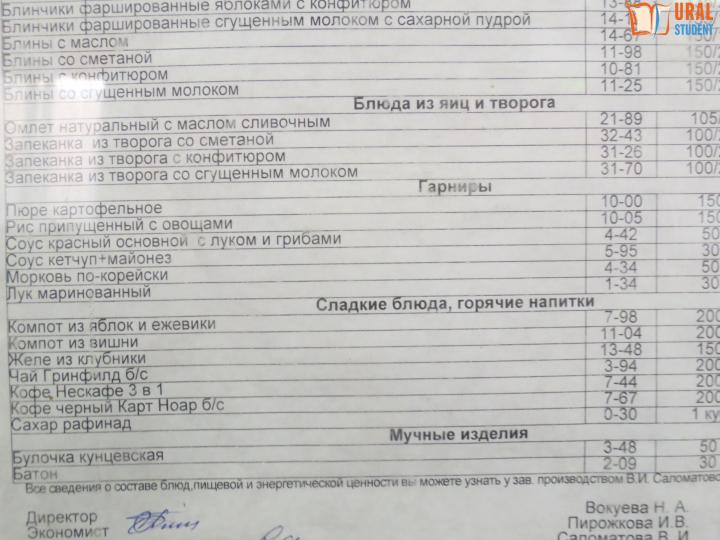 Блинчики фаршированные яблоками с конфитюром
Блинчики фаршированные сгущенным молоком с сахарной пудрой 14-
URAL
STUDENT
Блины с маслом 14-67 150/
Блины со сметаной 11-98 150/
Блины с конфитюром 10-81 150/
Блины со сгущенным молоком 11-25 150/
Блюда из яиц и творога
Омлет натуральный с маслом сливочным 21-89 105/
Запеканка из творога со сметаной 32-43 100/
Запеканка из творога с конфитюром 31-26 100/
Запеканка из творога со сгущенным молоком 31-70 100/
Гарниры
Пюре картофельное 10-00 150
Рис припущенный с овощами 10-05 150
Соус красный основной с луком и грибами 4-42 50
Соус кетчуп+майонез 5-95 30
Морковь по-корейски 4-34 50
Лук маринованный 1-34 30
Сладкие блюда, горячие напитки
Компот из яблок и ежевики 7-98 200
Компот из вишни 11-04 200
Желе из клубники 13-48 150
Чай Гринфилд б/с 3-94 200
Кофе Нескафе 3 в 1 7-44 200
Кофе черный Карт Ноар б/с 7-67 200
Сахар рафинад 0-30 1 ку
Мучные изделия
Булочка кунцевская 3-48 50
Батон 2-09 30
Все сведения о составе блюд,пищевой и энергетической ценности вы можете узнать у зав. производством В.И. Саломатово
Директор Вокуева Н. А.
Экономист Пирожкова И.В.
Саломатова В. И.